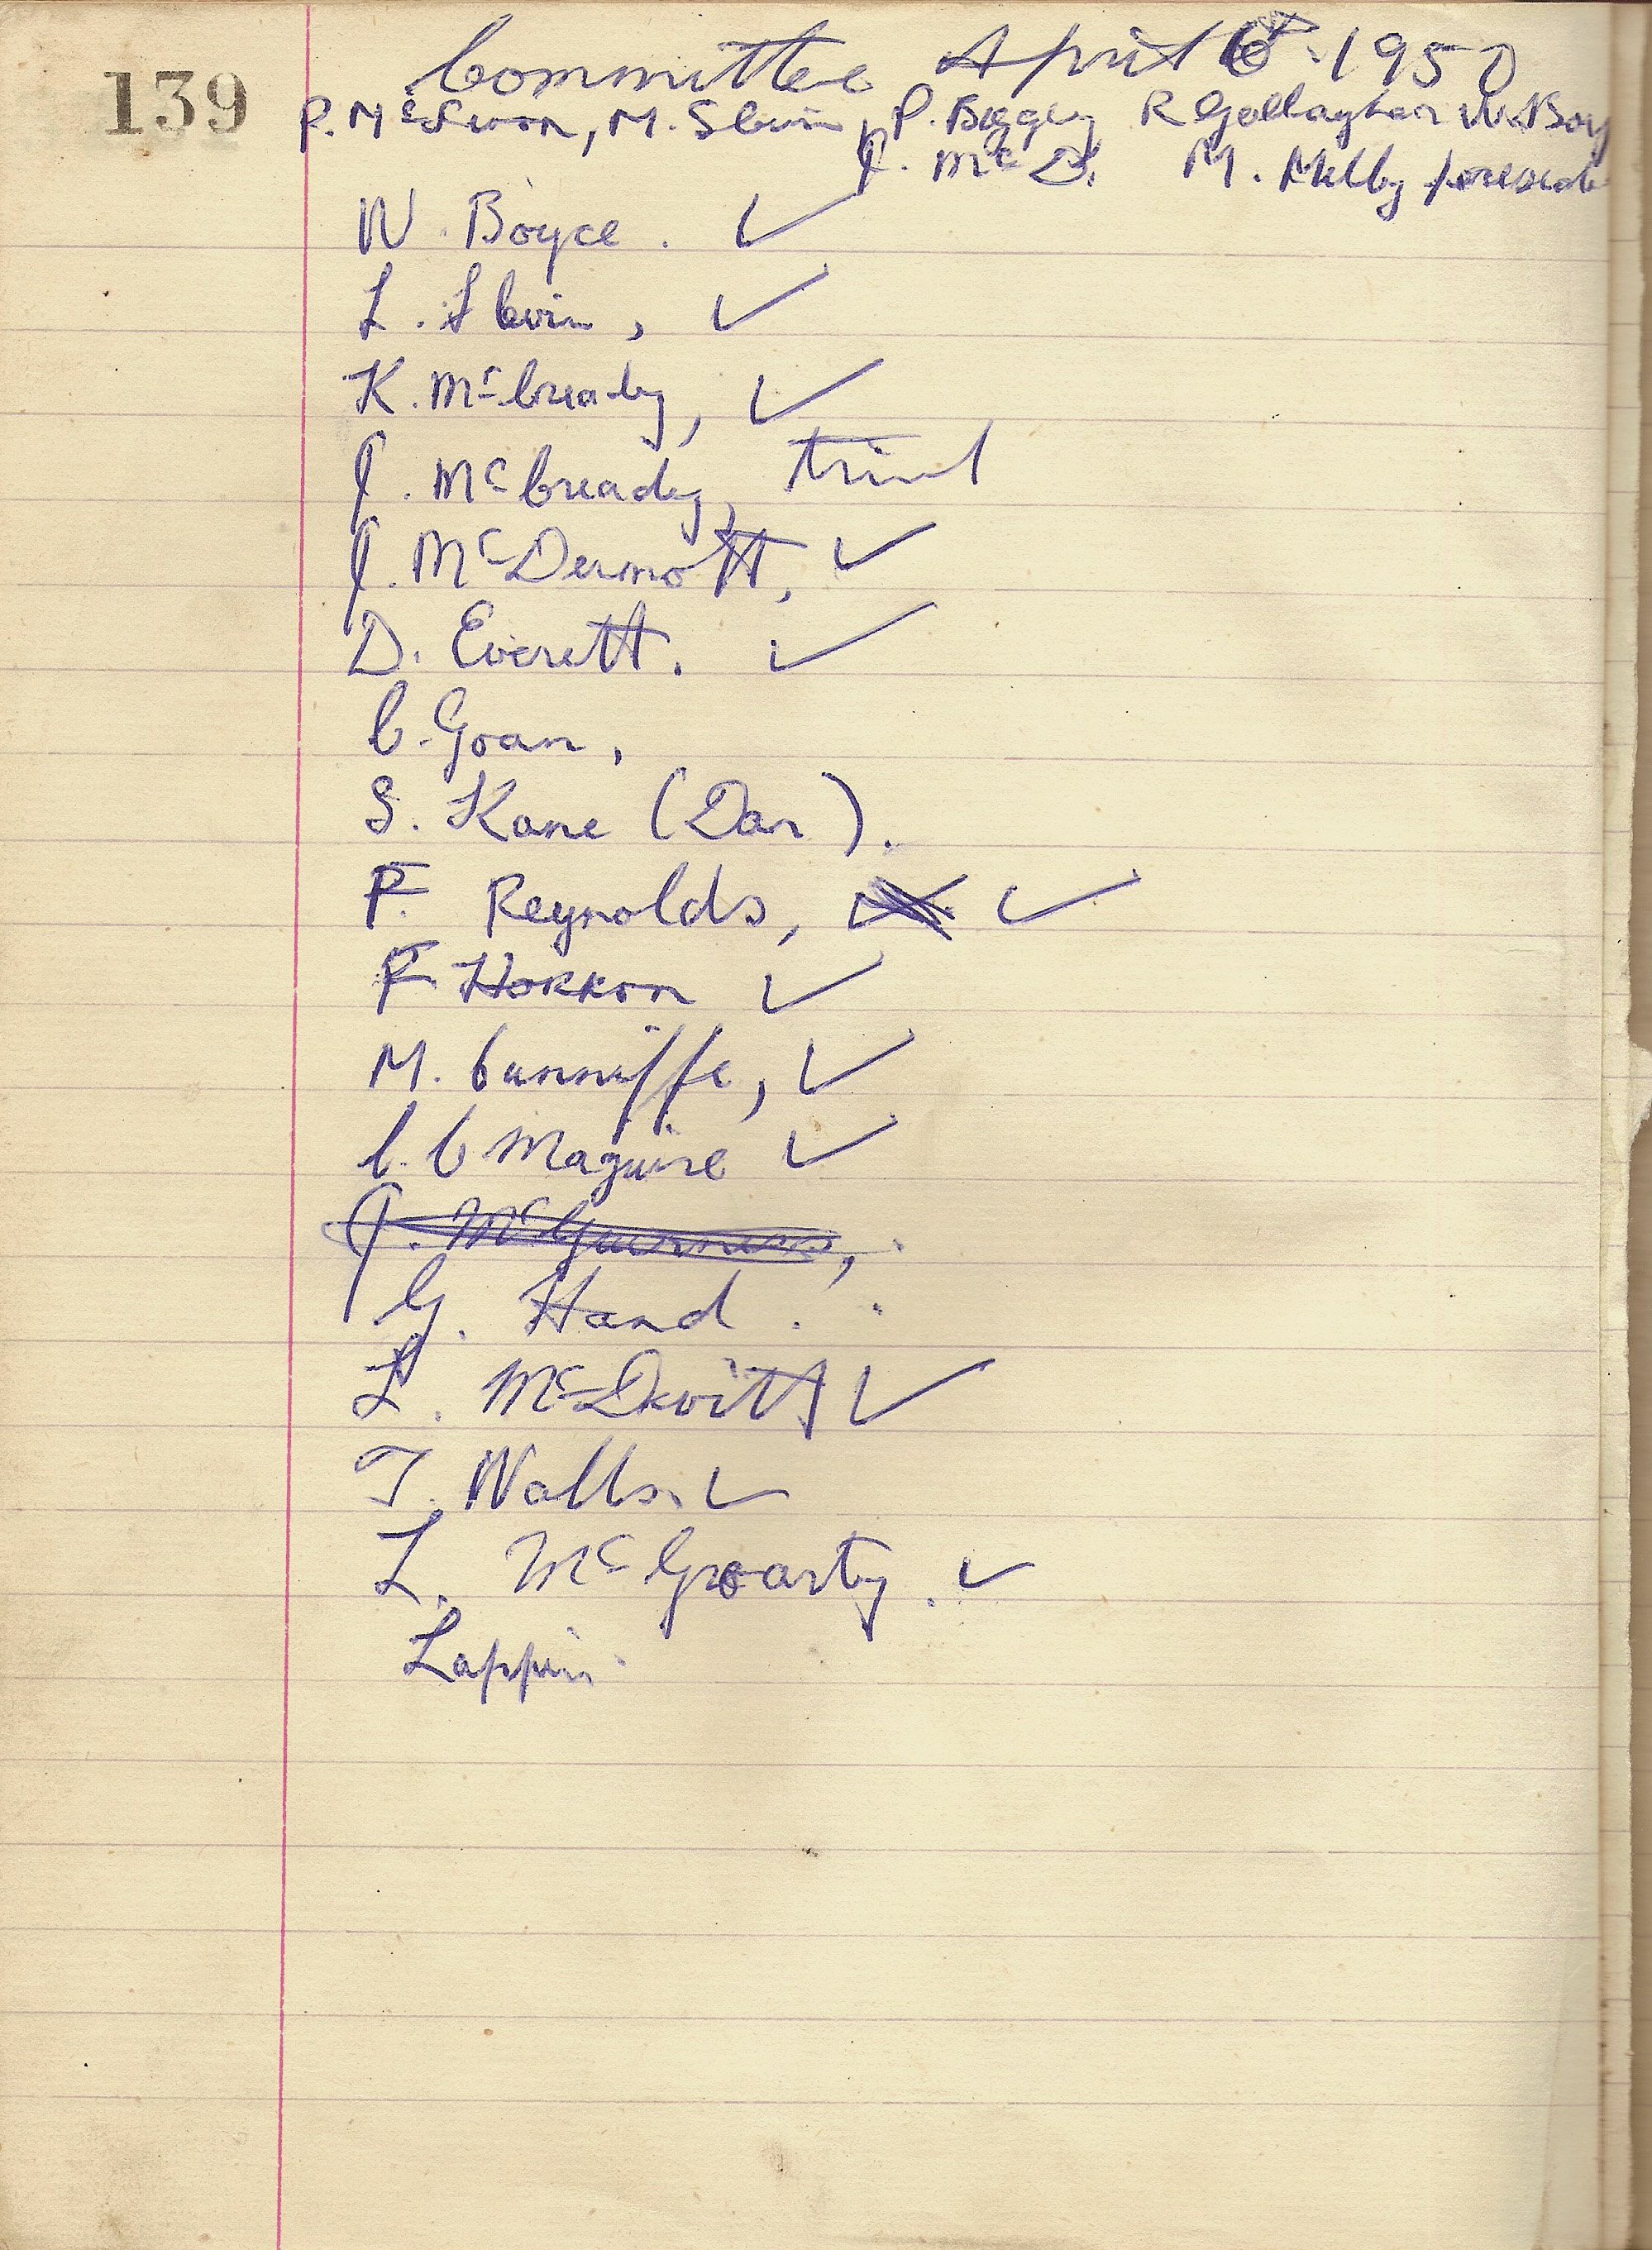 139
Committee April 6th. 1950
P. McGurran, M. Slevin, P. Biggy R Gallagher W. Boy
J. McD. M. Melly
W. Boyce. ✓
L. Slevin, ✓
K. McCready, ✓
J. McCready, trial
J. McDermott, ✓
D. Everett. ✓
C. Goan,
S. Kane (Dan).
F. Reynolds, ✓
F. Horkon ✓
M. Cunniffe, ✓
C. C Maguire ✓
J. McGuinness,
G. Hand.
L. McDevitt ✓
T. Walls. ✓
L. McGroarty. ✓
Lappin